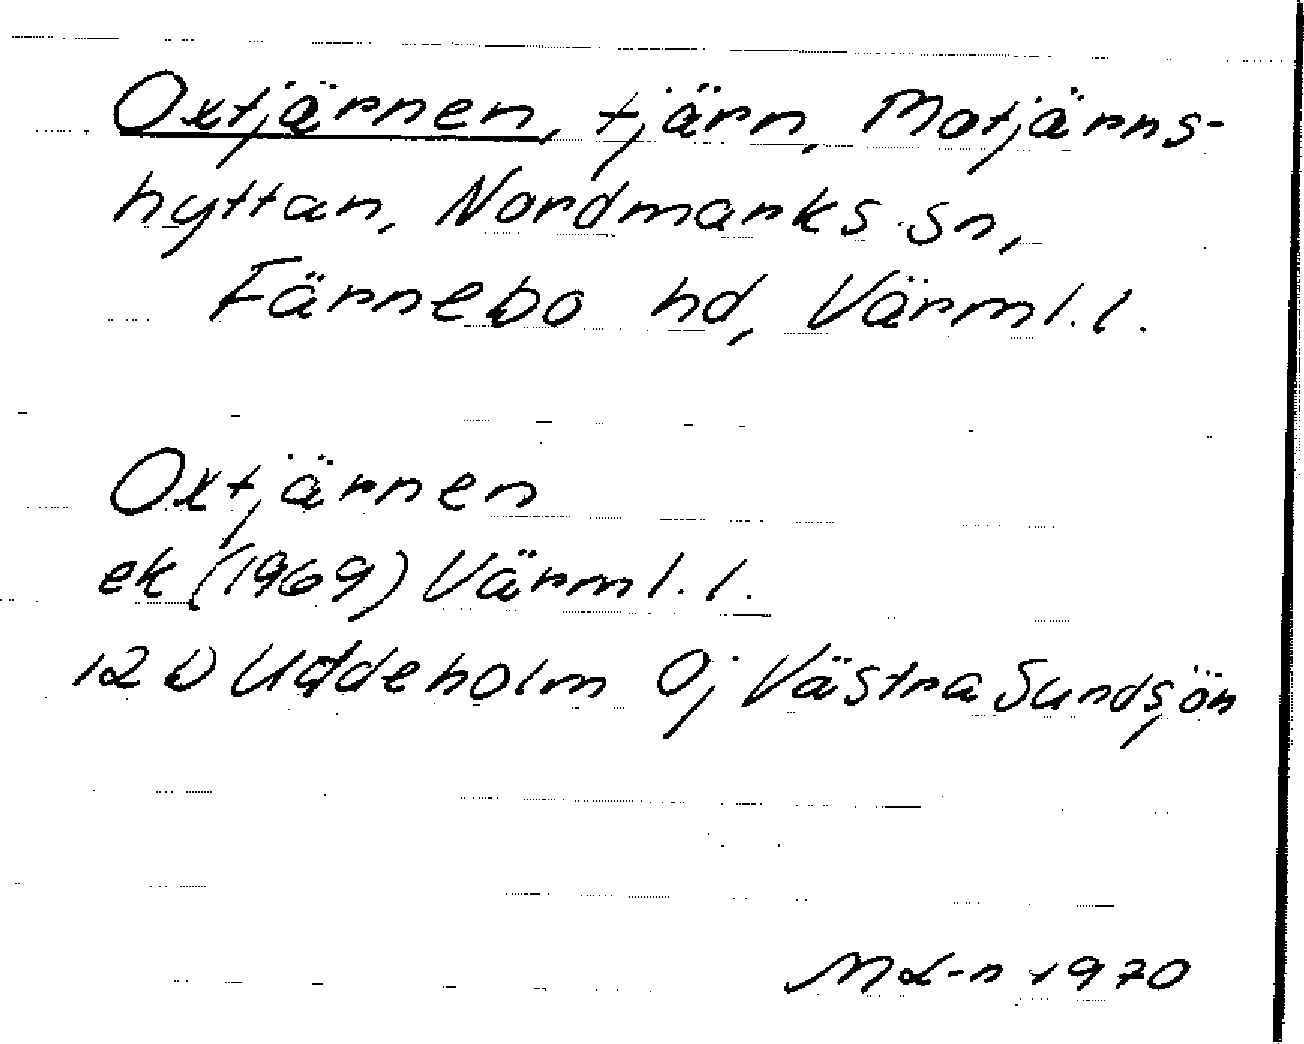 Oxtjärnen, tjärn, Motjärns-
hyttan, Nordmarks sn,
Färnebo hd, Värml. l.
Oxtjärnen
ek (1969) Värml. l.
12 D Uddeholm 0j Västra Sundsjön
1970